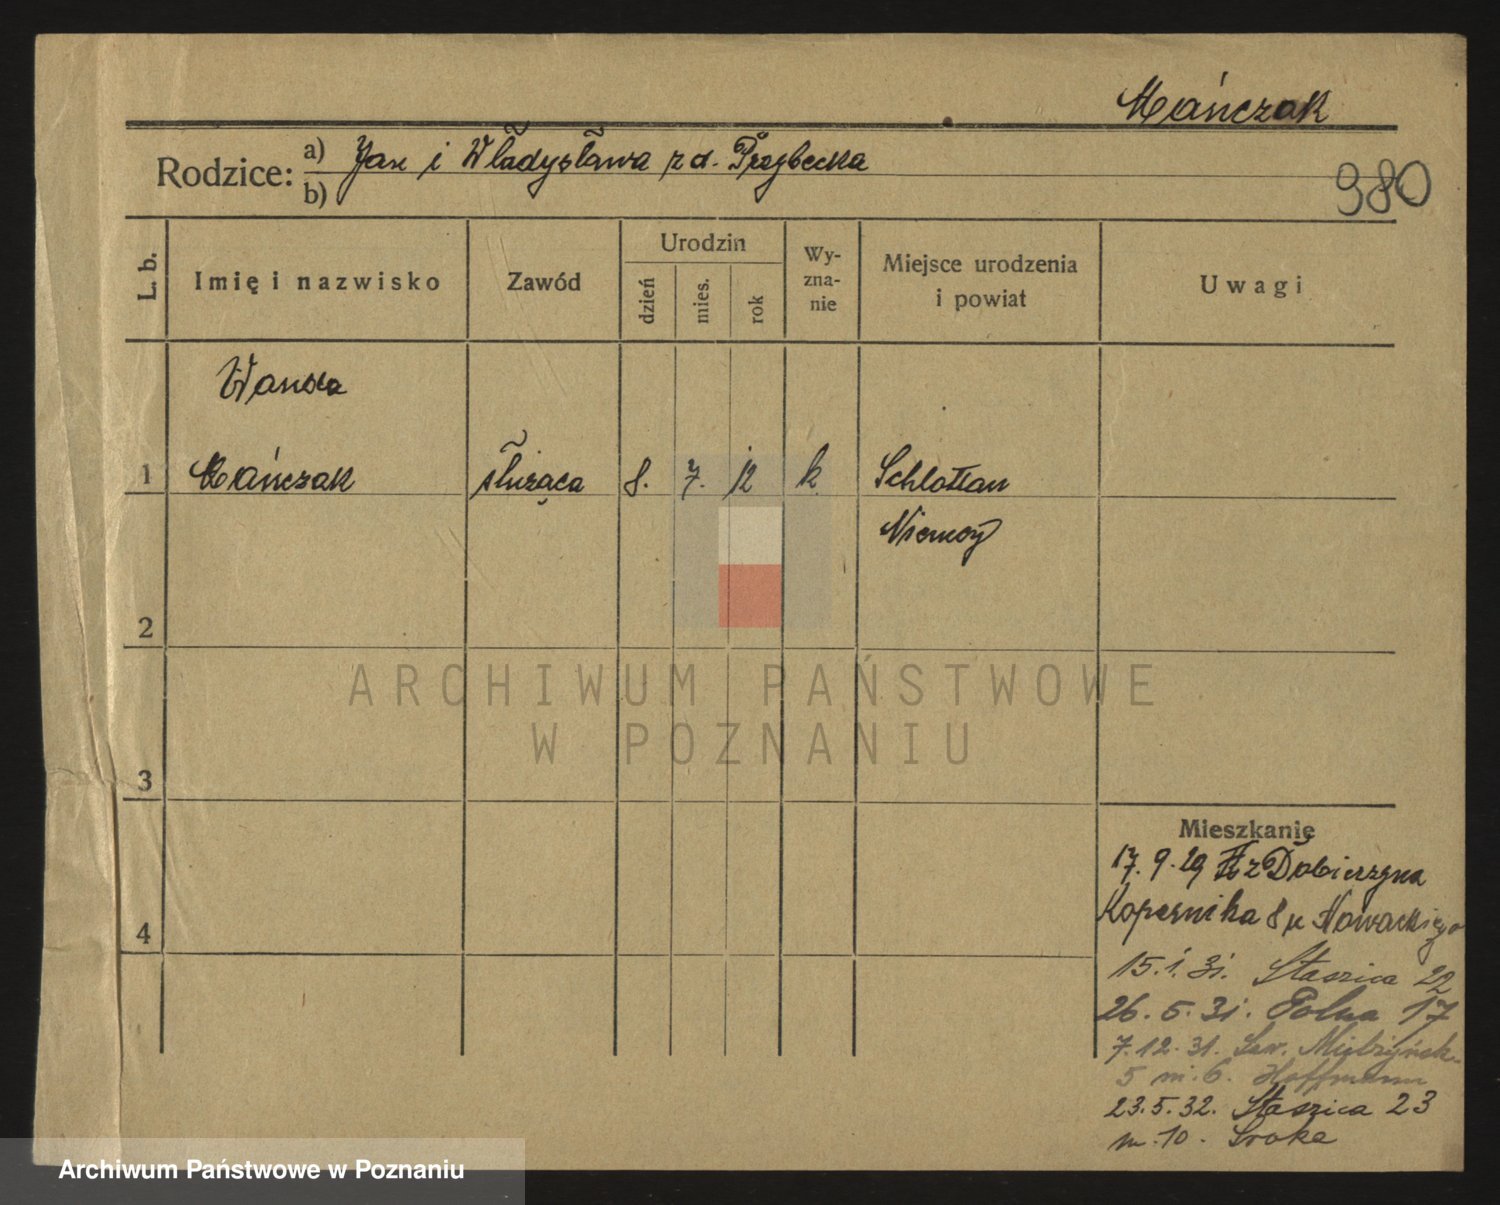 Mańczak
Rodzice: a) Jan i Władysława z d. Przybecka
b)
980
L. b.
Imię i nazwisko
Zawód
Urodzin
dzień
mies.
rok
Wy-
zna-
nie
Miejsce urodzenia
i powiat
Uwagi
Wanda
1 Mańczak służąca 8. 7. 12 k Schlottau
Niemcy
2
3
4
ARCHIWUM PAŃSTWOWE
W POZNANIU
Mieszkanie
17.9.29 z Dobierzyna
Kopernika 8 u Nowackiego
15.1.31. Staszica 22
26.5.31. Polna 17
7.12.31. Sew. Mielżyńsk.
5 m. 6. Hoffmann
23.5.32. Staszica 23
m. 10. Sroka
Archiwum Państwowe w Poznaniu